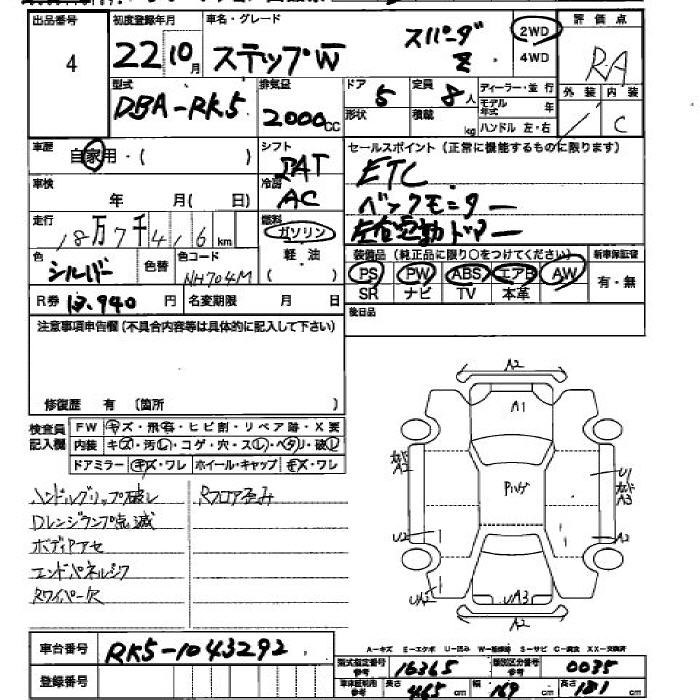 出品番号 初度登録年月 車名・グレード 評価点
4 22 10月 ステップW スパーダ Z 2WD 4WD RA
型式 排気量 ドア 定員 ディーラー・並行 外装 内装
DBA-RK5 2000CC 5 8人 モデル年式 年 C
形状 積載 kg ハンドル 左・右
車歴 自家用・( ) シフト セールスポイント(正常に機能するものに限ります)
ETC
車検 年 月(日) 冷房 AC バックモニター
走行 18万7千416km 燃料 ガソリン 左右電動ドアー
色 シルバー 色替 色コード NH704M 軽油 ( ) 装備品(純正品に限り○をつけてください) 新車保証書
PS PW ABS エアB AW 有・無
SR ナビ TV 本革
R券 13.940円 名変期限 月 日 後日品
注意事項申告欄(不具合内容等は具体的に記入して下さい)
修復歴 有 (箇所 )
検査員記入欄 FW キズ・飛石・ヒビ割・リペア跡・X要
内装 キズ・汚レ・コゲ・穴・スレ・ヘタリ・破レ
ドアミラー キズ・ワレ ホイール・キャップ キズ・ワレ
ハンドルグリップ破レ Rフロア歪み
Dレンジランプ点滅
ボディアセ
エンドパネルシワ
Rワイパー欠
A2
A1
A2
U1
A3
U2
A2
UA3
A2
車台番号 RK5-1043292
登録番号
A-キズ E-エクボ U-凹み W-補修跡 S-サビ C-腐食 XX-交換済
型式指定番号 参考 16365 類別区分番号 参考 0035
車体証記載 参考 長さ 465cm 幅 169cm 高さ 181cm